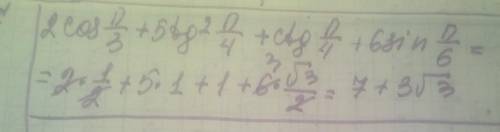 2cos π/3 + 5tg² π/4 + ctg π/4 + 6sin π/6 =
= 2·1/2 + 5·1 + 1 + 6·√3/2 = 7 + 3√3